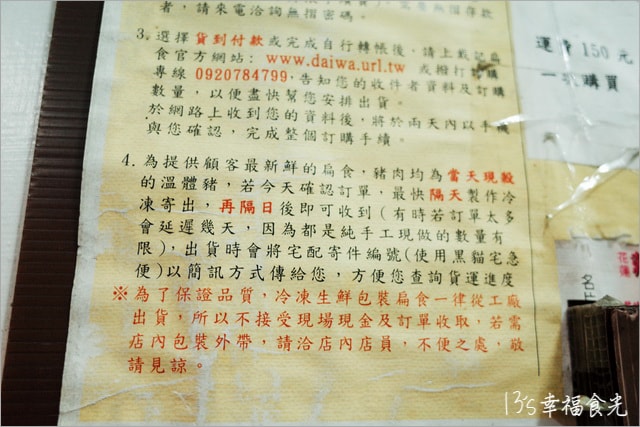 者，請來電洽詢無摺密碼。
3. 選擇貨到付款或完成自行轉帳後，請上戴記扁
食官方網站：www.daiwa.url.tw 或撥打訂購
專線 0920784799，告知您的收件者資料及訂購
數量，以便盡快幫您安排出貨。
於網路上收到您的資料後，將於兩天內以手機
與您確認，完成整個訂購手續。
4. 為提供顧客最新鮮的扁食，豬肉均為當天現殺
的溫體豬，若今天確認訂單，最快隔天製作冷
凍寄出，再隔日後即可收到（有時若訂單太多
會延遲幾天，因為都是純手工現做的數量有
限），出貨時會將宅配寄件編號(使用黑貓宅急
便)以簡訊方式傳給您，方便您查詢貨運進度
※為了保證品質，冷凍生鮮包裝扁食一律從工廠
出貨，所以不接受現場現金及訂單收取，若需
店內包裝外帶，請洽店內店員，不便之處，敬
請見諒。
運費150元
購買
花蓮
名片
13's幸福食光